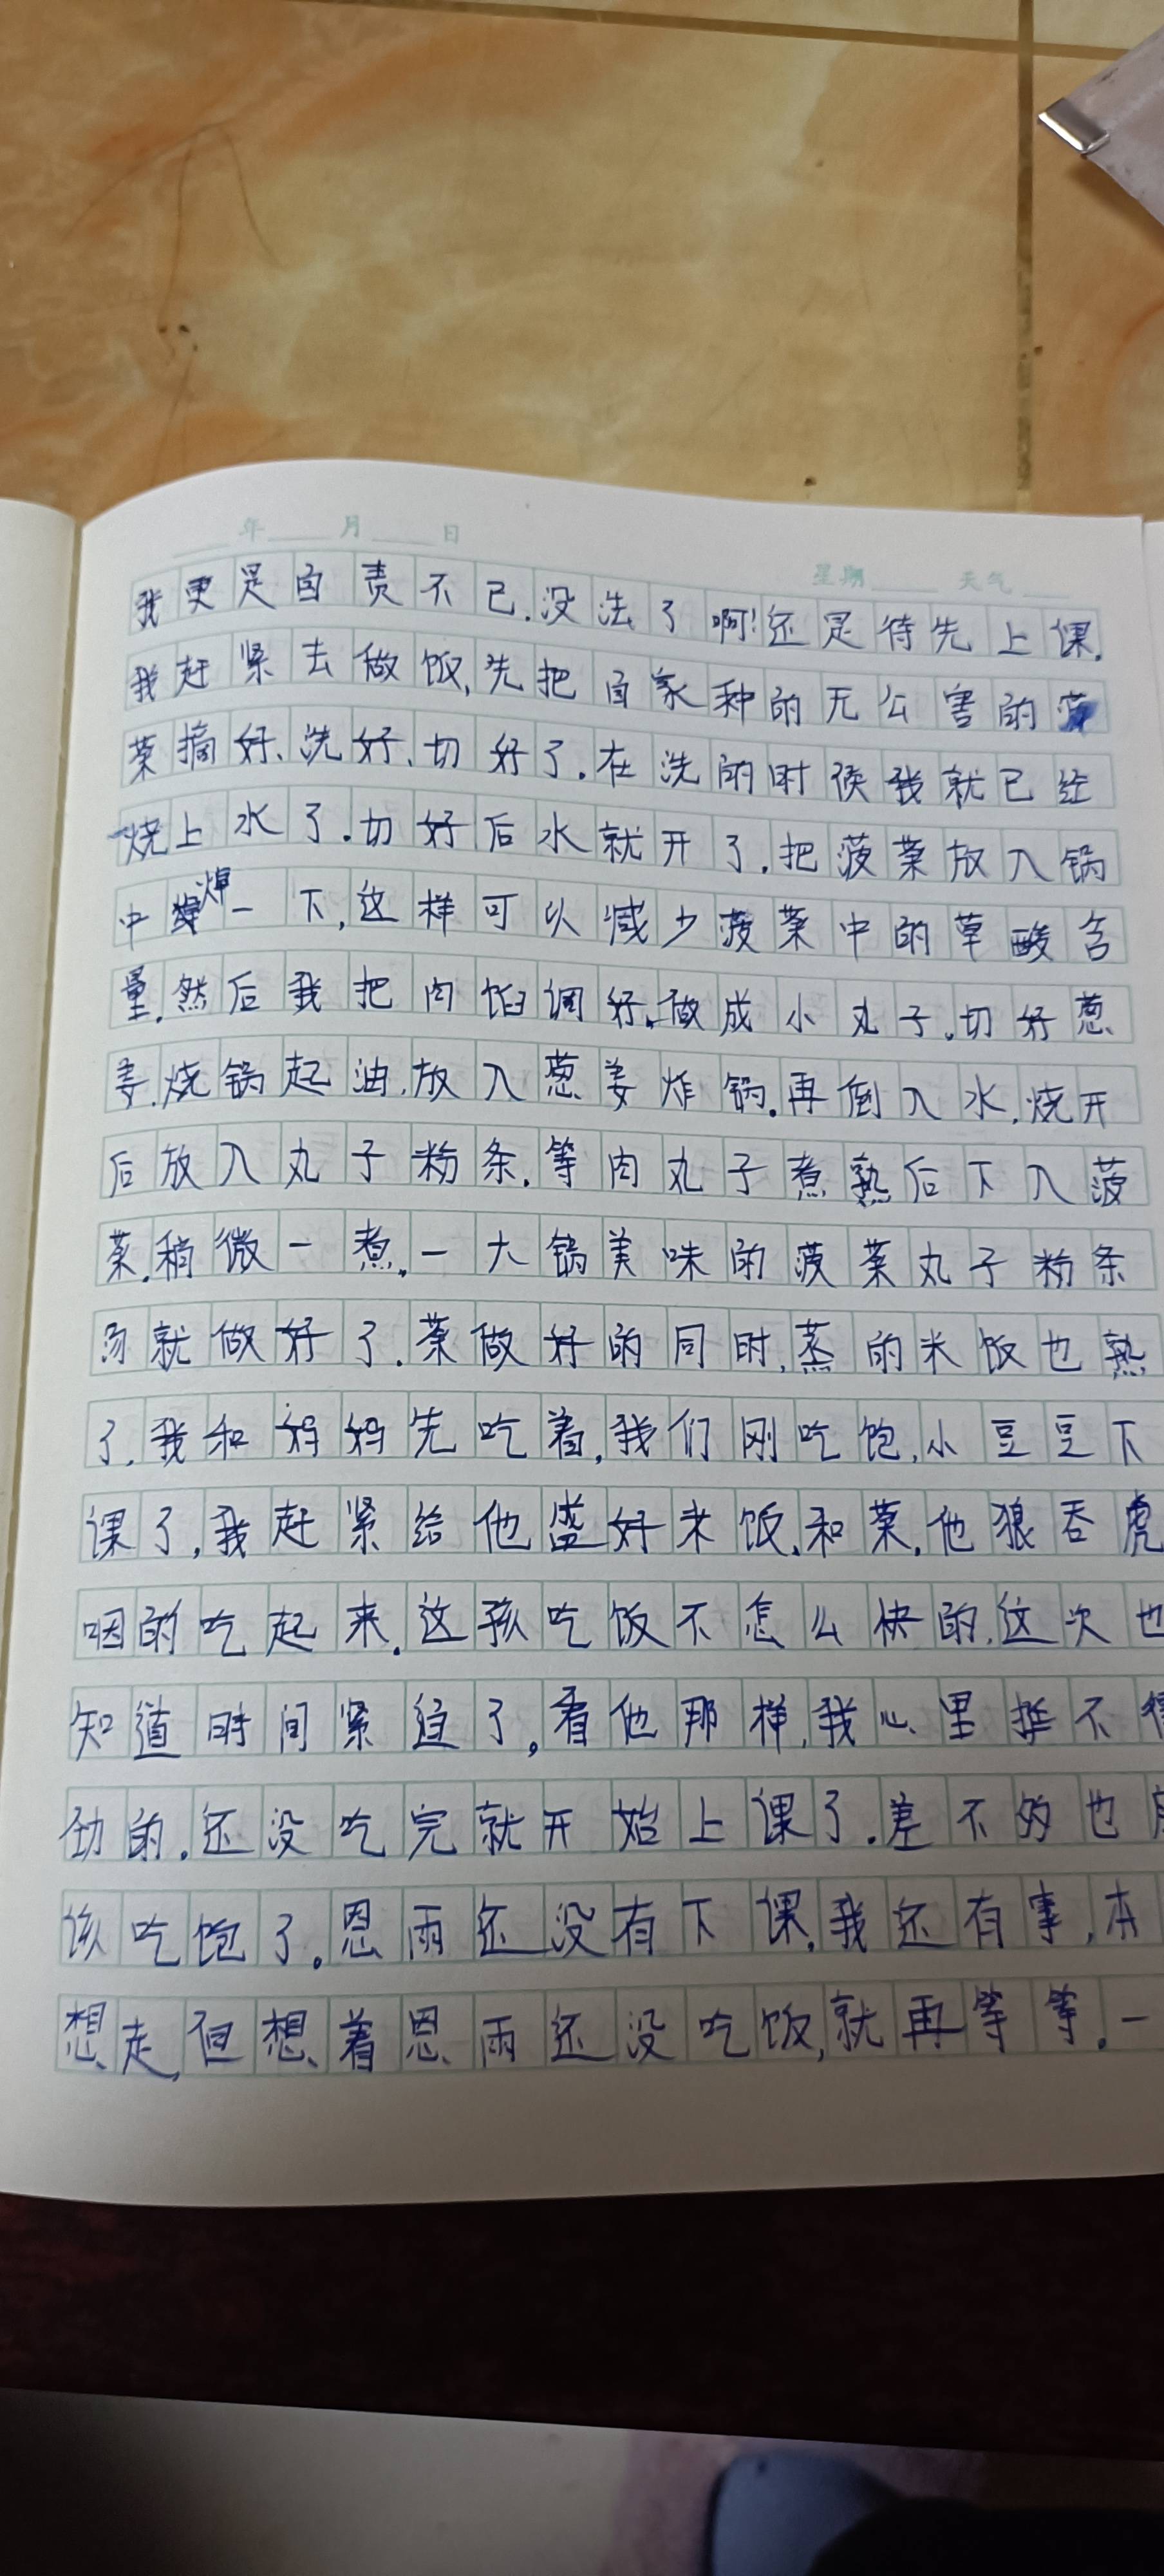 年 月 日 星期 天气
我更是自责不已.没法了啊!还是待先上课.
我赶紧去做饭,先把自家种的无公害的菠
菜摘好、洗好、切好了.在洗的时候我就已经
烧上水了.切好后水就开了.把菠菜放入锅
中焯一下,这样可以减少菠菜中的草酸含
量.然后我把肉馅调好.做成小丸子.切好葱
姜.烧锅起油.放入葱姜炸锅.再倒入水.烧开
后放入丸子粉条.等肉丸子煮熟后下入菠
菜.稍微一煮.一大锅美味的菠菜丸子粉条
汤就做好了.菜做好的同时,蒸的米饭也熟
了.我和妈妈先吃着,我们刚吃饱,小豆豆下
课了,我赶紧给他盛好米饭.和菜.他狼吞虎
咽的吃起来.这孩吃饭不怎么快的.这次也
知道时间紧迫了。看他那样,我心里挺不得
劲的.还没吃完就开始上课了.差不多也应
该吃饱了。恩雨还没有下课.我还有事,本
想走,但想着恩雨还没吃饭,就再等等.一